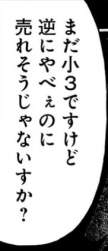 まだ小3ですけど
逆にやべぇのに
売れそうじゃないすか？